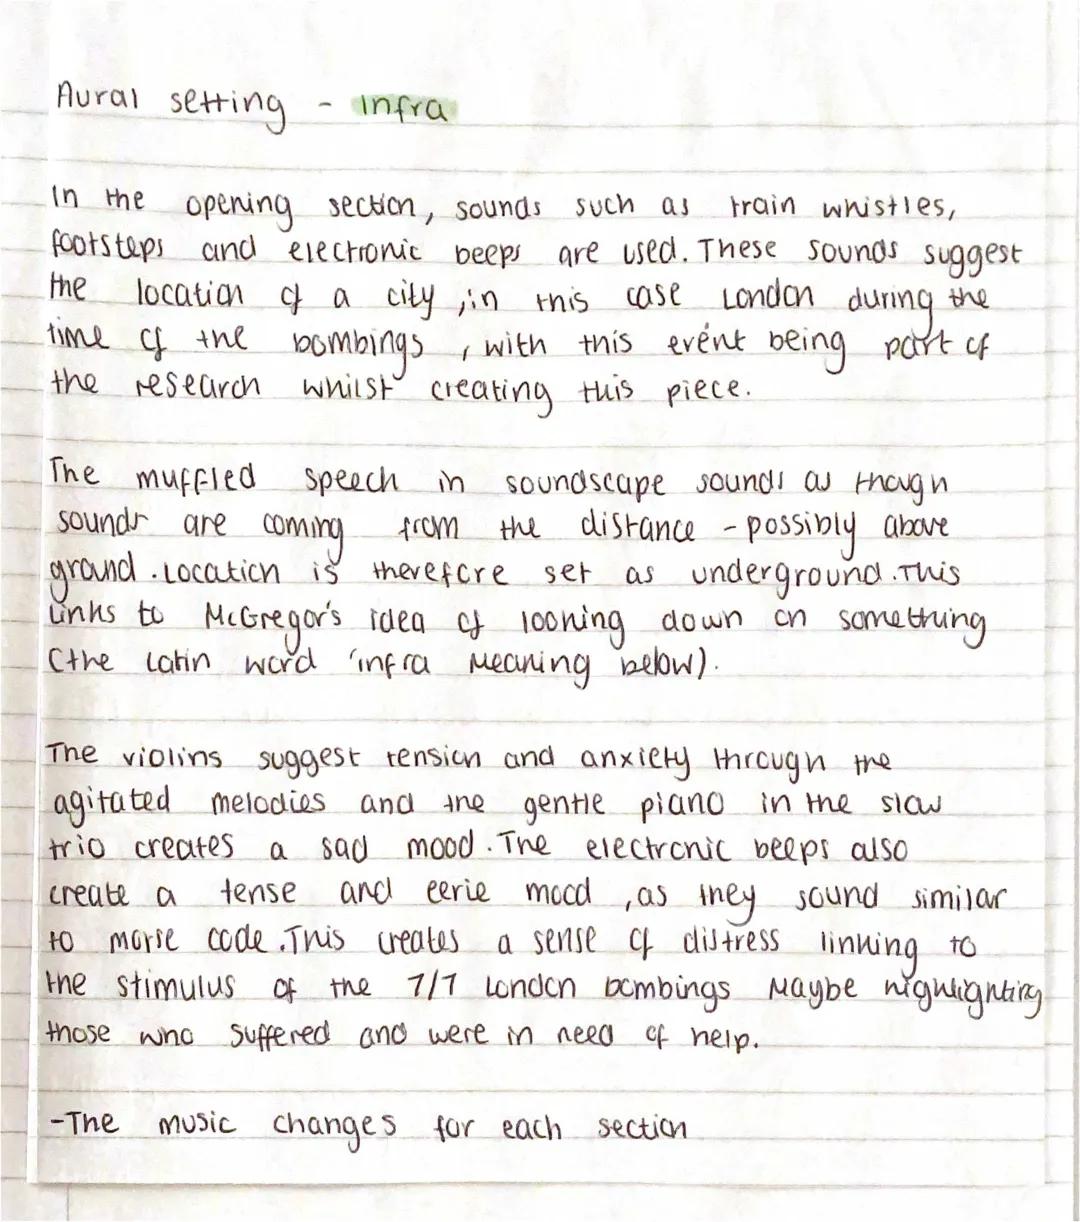 Aural setting - Infra
In the opening section, sounds such as train whistles,
footsteps and electronic beeps are used. These sounds suggest
the location of a city, in this case London during the
time of the bombings, with this event being part of
the research whilst creating this piece.
The muffled speech in soundscape sounds as though
sounds are coming from the distance - possibly above
ground. Location is therefore set as underground. This
links to McGregor's idea of looking down on something
(the Latin word 'infra meaning below).
The violins suggest tension and anxiety through the
agitated melodies and the gentle piano in the slow
trio creates a sad mood. The electronic beeps also
create a tense and eerie mood, as they sound similar
to morse code. This creates a sense of distress linking to
the stimulus of the 7/7 London bombings Maybe highlighting
those who suffered and were in need of help.
-The music changes for each section